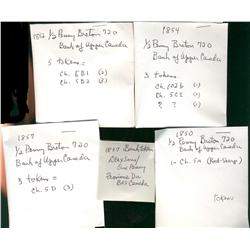 1852 1/2 Penny Breton 720
Bank of Upper Canada
5 tokens =
Ch. 5B1 (2)
Ch. 5B2 (3)
1854
1/2 Penny Breton 720
Bank of Upper Canada
3 tokens
Ch. 5C1 (1)
? ? (1)
1857
1/2 Penny Breton 720
Bank of Upper Canada
3 tokens =
Ch. 5D (3)
1837 Bank token
One Penny
Province Du
Bas Canada
1850
1/2 Penny Breton 720
Bank of Upper Canada
1- Ch. 5A
Tokens